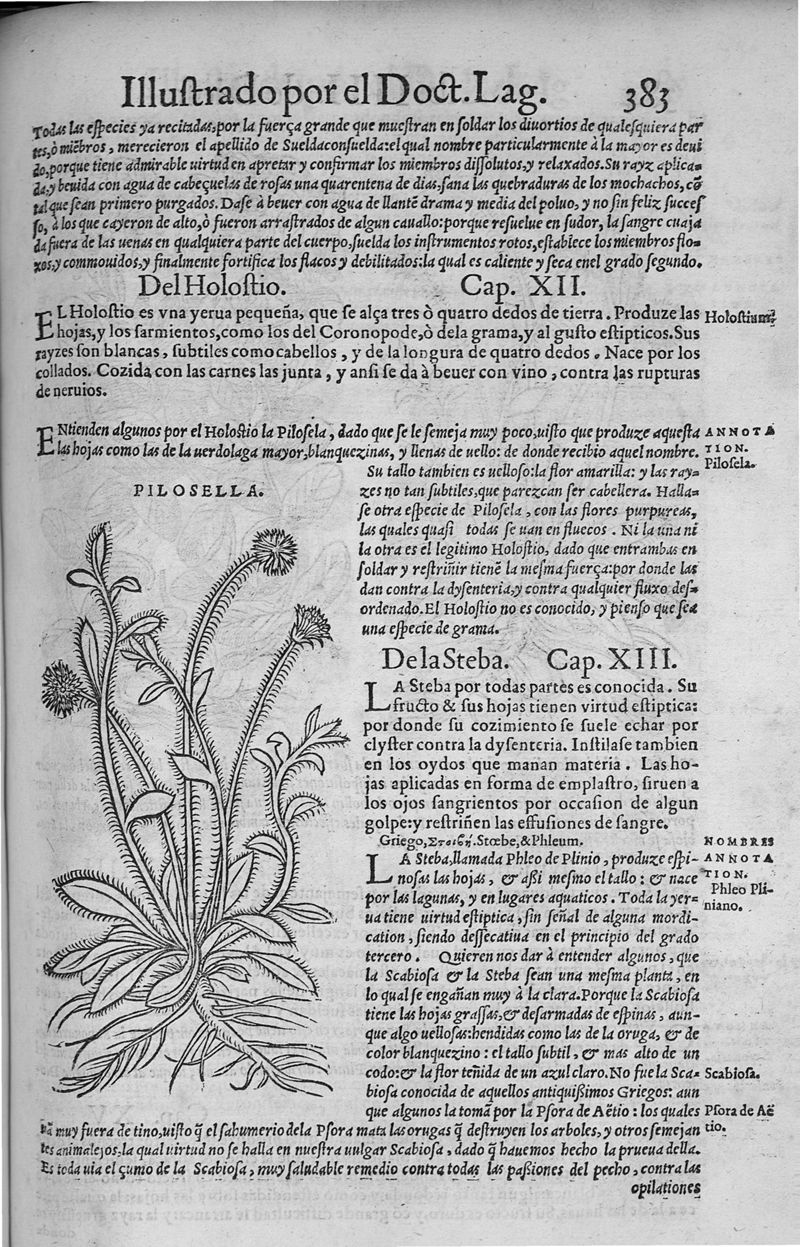 Illuſtrado por el Doct. Lag. 383
Todas las eſpecies ya recitadas, por la fuerça grande que mueſtran en ſoldar los diuortios de qualeſquiera par
tes, ò miẽbros, merecieron el apellido de Sueldaconſuelda: el qual nombre particularmente à la mayor es deui
do, porque tiene admirable uirtud en apretar y confirmar los miembros diſſolutos, y relaxados. Su rayz aplica-
da, y beuida con agua de cabeçuelas de roſas una quarentena de dias, ſana las quebraduras de los mochachos, cõ
tal que ſean primero purgados. Daſe à beuer con agua de llantẽ drama y media del poluo, y no ſin feliz ſucceſ
ſo, à los que cayeron de alto, ò fueron arraſtrados de algun cauallo: porque reſuelue en ſudor, la ſangre cuaja
da fuera de las uenas en qualquiera parte del cuerpo, ſuelda los inſtrumentos rotos, eſtablece los miembros flo-
xos, y commouidos, y finalmente fortifica los flacos y debilitados: la qual es caliente y ſeca enel grado ſegundo.
Del Holoſtio. Cap. XII.
EL Holoſtio es vna yerua pequeña, que ſe alça tres ò quatro dedos de tierra. Produze las
hojas, y los ſarmientos, como los del Coronopode, ò dela grama, y al guſto eſtipticos. Sus
rayzes ſon blancas, ſubtiles como cabellos, y de la longura de quatro dedos. Nace por los
collados. Cozida con las carnes las junta, y anſi ſe da à beuer con vino, contra las rupturas
de neruios.
ENtienden algunos por el Holoſtio la Piloſela, dado que ſe le ſemeja muy poco, uiſto que produze aqueſta
las hojas como las de la uerdolaga mayor, blanquezinas, y llenas de uello: de donde recibio aquel nombre.
ANNOTA
TION.
Piloſela.
PILOSELLA.
Su tallo tambien es uelloſo: la flor amarilla: y las ray-
zes no tan ſubtiles, que parezcan ſer cabellera. Halla-
ſe otra eſpecie de Piloſela, con las flores purpureas,
las quales quaſi todas ſe uan en fluecos. Ni la una ni
la otra es el legitimo Holoſtio, dado que entrambas en
ſoldar y reſtriñir tienẽ la meſma fuerça: por donde las
dan contra la dyſenteria, y contra qualquier fluxo deſ-
ordenado. El Holoſtio no es conocido, y pienſo que ſea
una eſpecie de grama.
De la Steba. Cap. XIII.
LA Steba por todas partes es conocida. Su
fructo & ſus hojas tienen virtud eſtiptica:
por donde ſu cozimiento ſe ſuele echar por
clyſter contra la dyſenteria. Inſtilaſe tambien
en los oydos que manan materia. Las ho-
jas aplicadas en forma de emplaſtro, ſiruen a
los ojos ſangrientos por occaſion de algun
golpe: y reſtriñen las effuſiones de ſangre.
Griego, Στοιβή. Stœbe, & Phleum.
NOMBRES
LA Steba, llamada Phleo de Plinio, produze eſpi-
noſas las hojas, & aſſi meſmo el tallo: & nace
por las lagunas, y en lugares aquaticos. Toda la yer-
ua tiene uirtud eſtiptica, ſin ſeñal de alguna mordi-
cation, ſiendo deſſecatiua en el principio del grado
tercero. Quieren nos dar à entender algunos, que
la Scabioſa & la Steba ſean una meſma planta, en
lo qual ſe engañan muy à la clara. Porque la Scabioſa
tiene las hojas graſſas, & deſarmadas de eſpinas, aun-
que algo uelloſas: hendidas como las de la oruga, & de
color blanquezino: el tallo ſubtil, & mas alto de un
codo: & la flor teñida de un azul claro. No fue la Sca-
bioſa conocida de aquellos antiquiſſimos Griegos: aun
que algunos la tomã por la Pſora de Aëtio: los quales
ANNOTA
TION.
Phleo Pli-
niano.
Scabioſa.
Pſora de Aë
tio.
muy fuera de tino, uiſto q̃ el ſahumerio dela Pſora mata las orugas q̃ deſtruyen los arboles, y otros ſemejan
tes animalejos: la qual virtud no ſe halla en nueſtra uulgar Scabioſa, dado q̃ hauemos hecho la prueua della.
Es toda uia el çumo de la Scabioſa, muy ſaludable remedio contra todas las paſſiones del pecho, contra las
opilationes